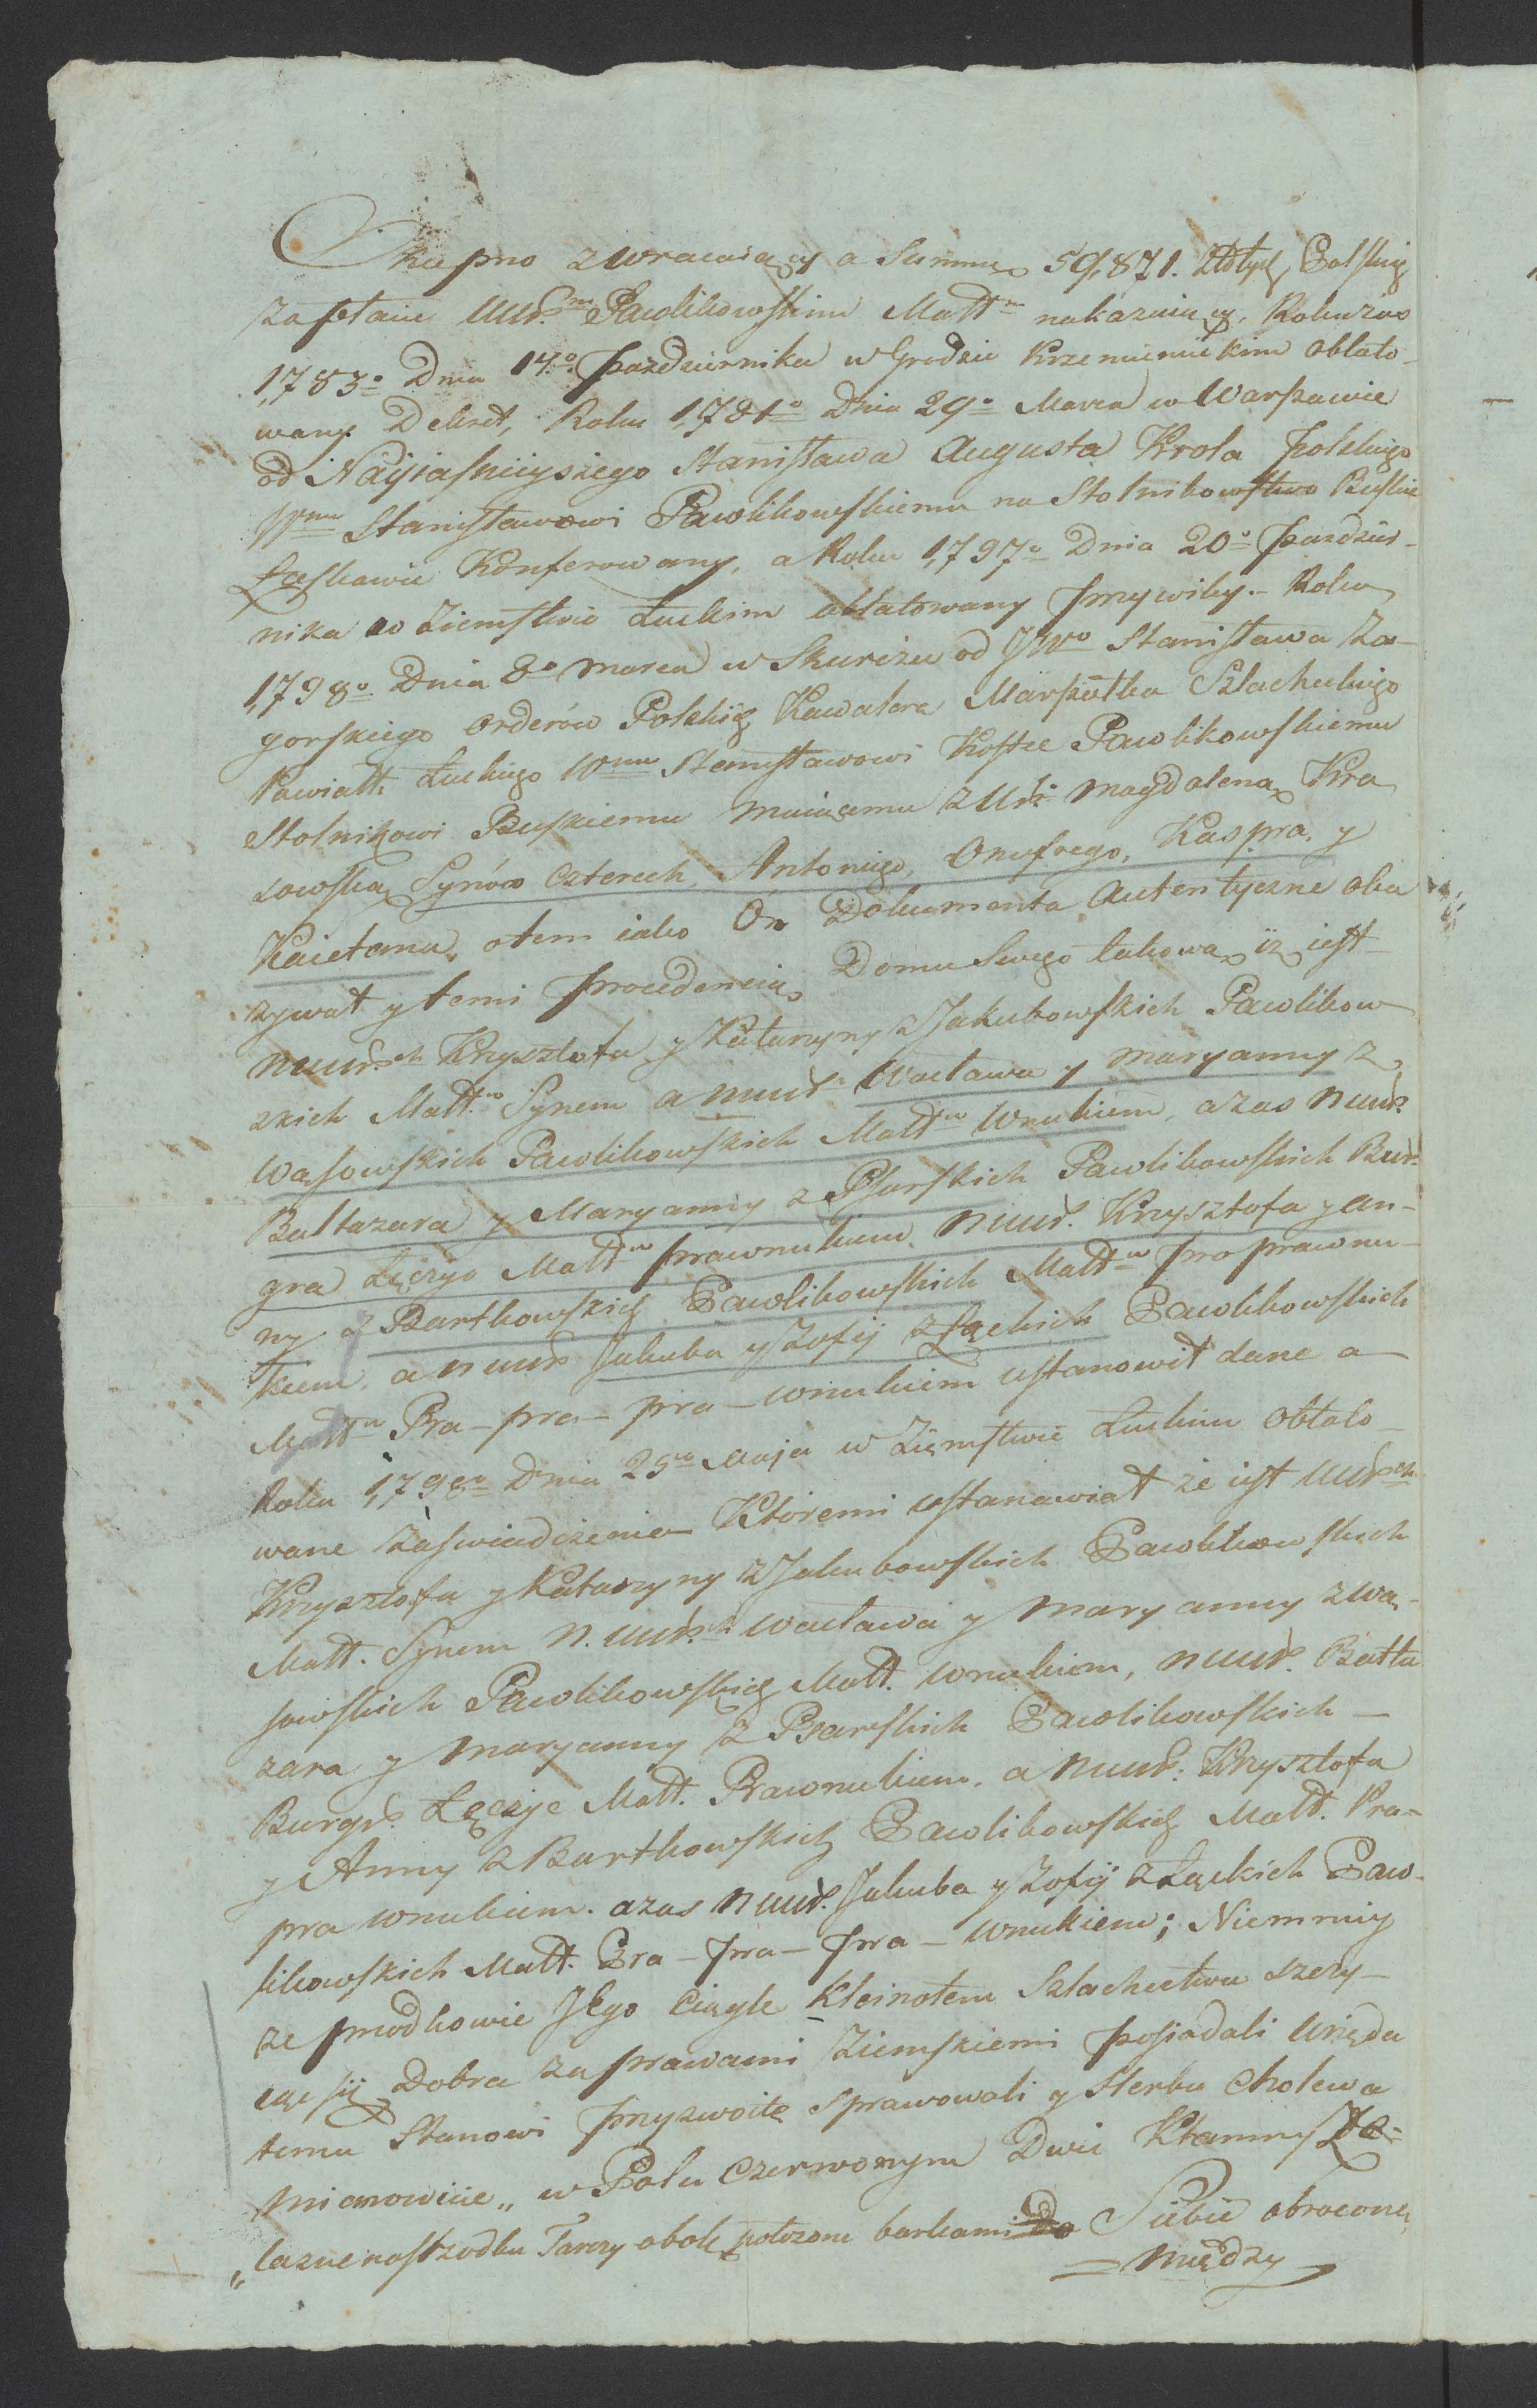 Skupno zwracaiący a Summę 59,871. Złotych Polskich
zapłacic UUr.m Pawlikowskim Małł.m nakazuiący. Roku zas
1,783o Dnia 14.o Pazdziernika w Grodzie Krzemienieckim oblato-
wany Dekret, Roku 1,781o Dnia 29o Marca w Warszawie
od Nayiasnieyszego Stanisława Augusta Krola Polskiego
Wmu Stanisławowi Pawlikowskiemu na Stolnikowstwo Buskie
Łaskawie Konferowany, a Roku 1,797o Dnia 20o Pazdzier-
nika w Ziemstwie Łuckim oblatowany Przywiley.- Roku
1,798o Dnia 8o marca w Skurczu od JWo Stanisława Za-
gorskiego orderów Polskich Kawalera Marszałka Szlacheckiego
Powiatu Łuckiego Wmu Stanisławowi Kostce Pawlikowskiemu
Stolnikowi Buskiemu maiącemu z Ur. Magdaleną Kra
sowską Synów czterech, Antoniego, Onufrego, Kaspra, y
Kaietana, otem iako On Dokumenta Autentyczne oka
zywał y temi Procedencią Domu Swego takową iż iest
nuurch Krzysztofa y Katarzyny z Jakubowskich Pawlikow
zkich Małł.w Synem a nuur. Wacława y Maryanny z
Wąsowskich Pawlikowskich Małł.w Wnukiem, azas nuur.
Baltazara y Maryanny z Psarskich Pawlikowskich Bur.
gra Łęczyc Małł.w Prawnukiem, nuur. Krzysztofa y An-
ny z Bartkowskich Pawlikowskich Małł.w Pra prawnu-
kiem, a nuur. Jakuba y Zofij z Łąckich Pawlikowskich
Małł.w Pra-pra-pra-wnukiem ustanowił dane a
Roku 1,798o Dnia 25go Maja w Ziemstwie Łuckim Oblato-
wane Zaswiadczenie Któremi ustanawiał że iest UUr.ch
Krzysztofa y Katarzyny z Jakubowskich Pawlikowskich
Małł. Synem n. uur.ch Wacława y Maryanny z Wą-
sowskich Pawlikowskich Małł. wnukiem, nuur. Balta
zara y Maryanny z Psarskich Pawlikowskich -
Burgr. Łęczyc Małł. Prawnukiem. a nuur: Krzysztofa
y Anny z Bartkowskich Pawlikowskich Małł. Pra-
pra wnukiem. azas nuur. Jakuba y Zofij z Łąckich Paw-
likowskich Małł. Pra-Pra-Pra-wnukiem; Niemniey
ze przodkowie Jego Ciągle Kleinotem Szlachectwa szczy-
cąc się Dobra za prawami Ziemskiemi posiadali Urzęda
temu Stanowi Przyzwoite sprawowali y Herbu Cholewa
mianowicie „ w Polu Czerwonym Dwie Klamry Że-
„lazne nasrzodku Tarczy obok położone barkami do Siebie obrocone,
= między